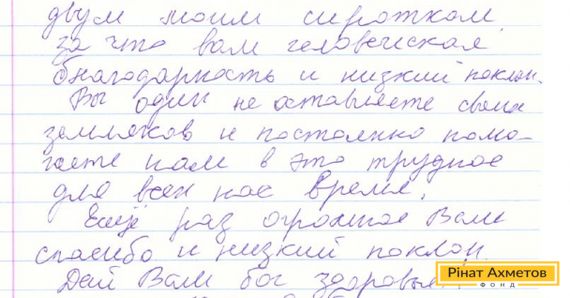 двум моим сироткам
за что вам человеческая
благодарность и низкий поклон.
Вы один не оставляете своих
земляков и постоянно помо-
гаете нам в это трудное
для всех нас время.
Ещё раз огромное Вам
спасибо и низкий поклон.
Дай Вам бог здоровья
Рінат Ахметов
ФОНД